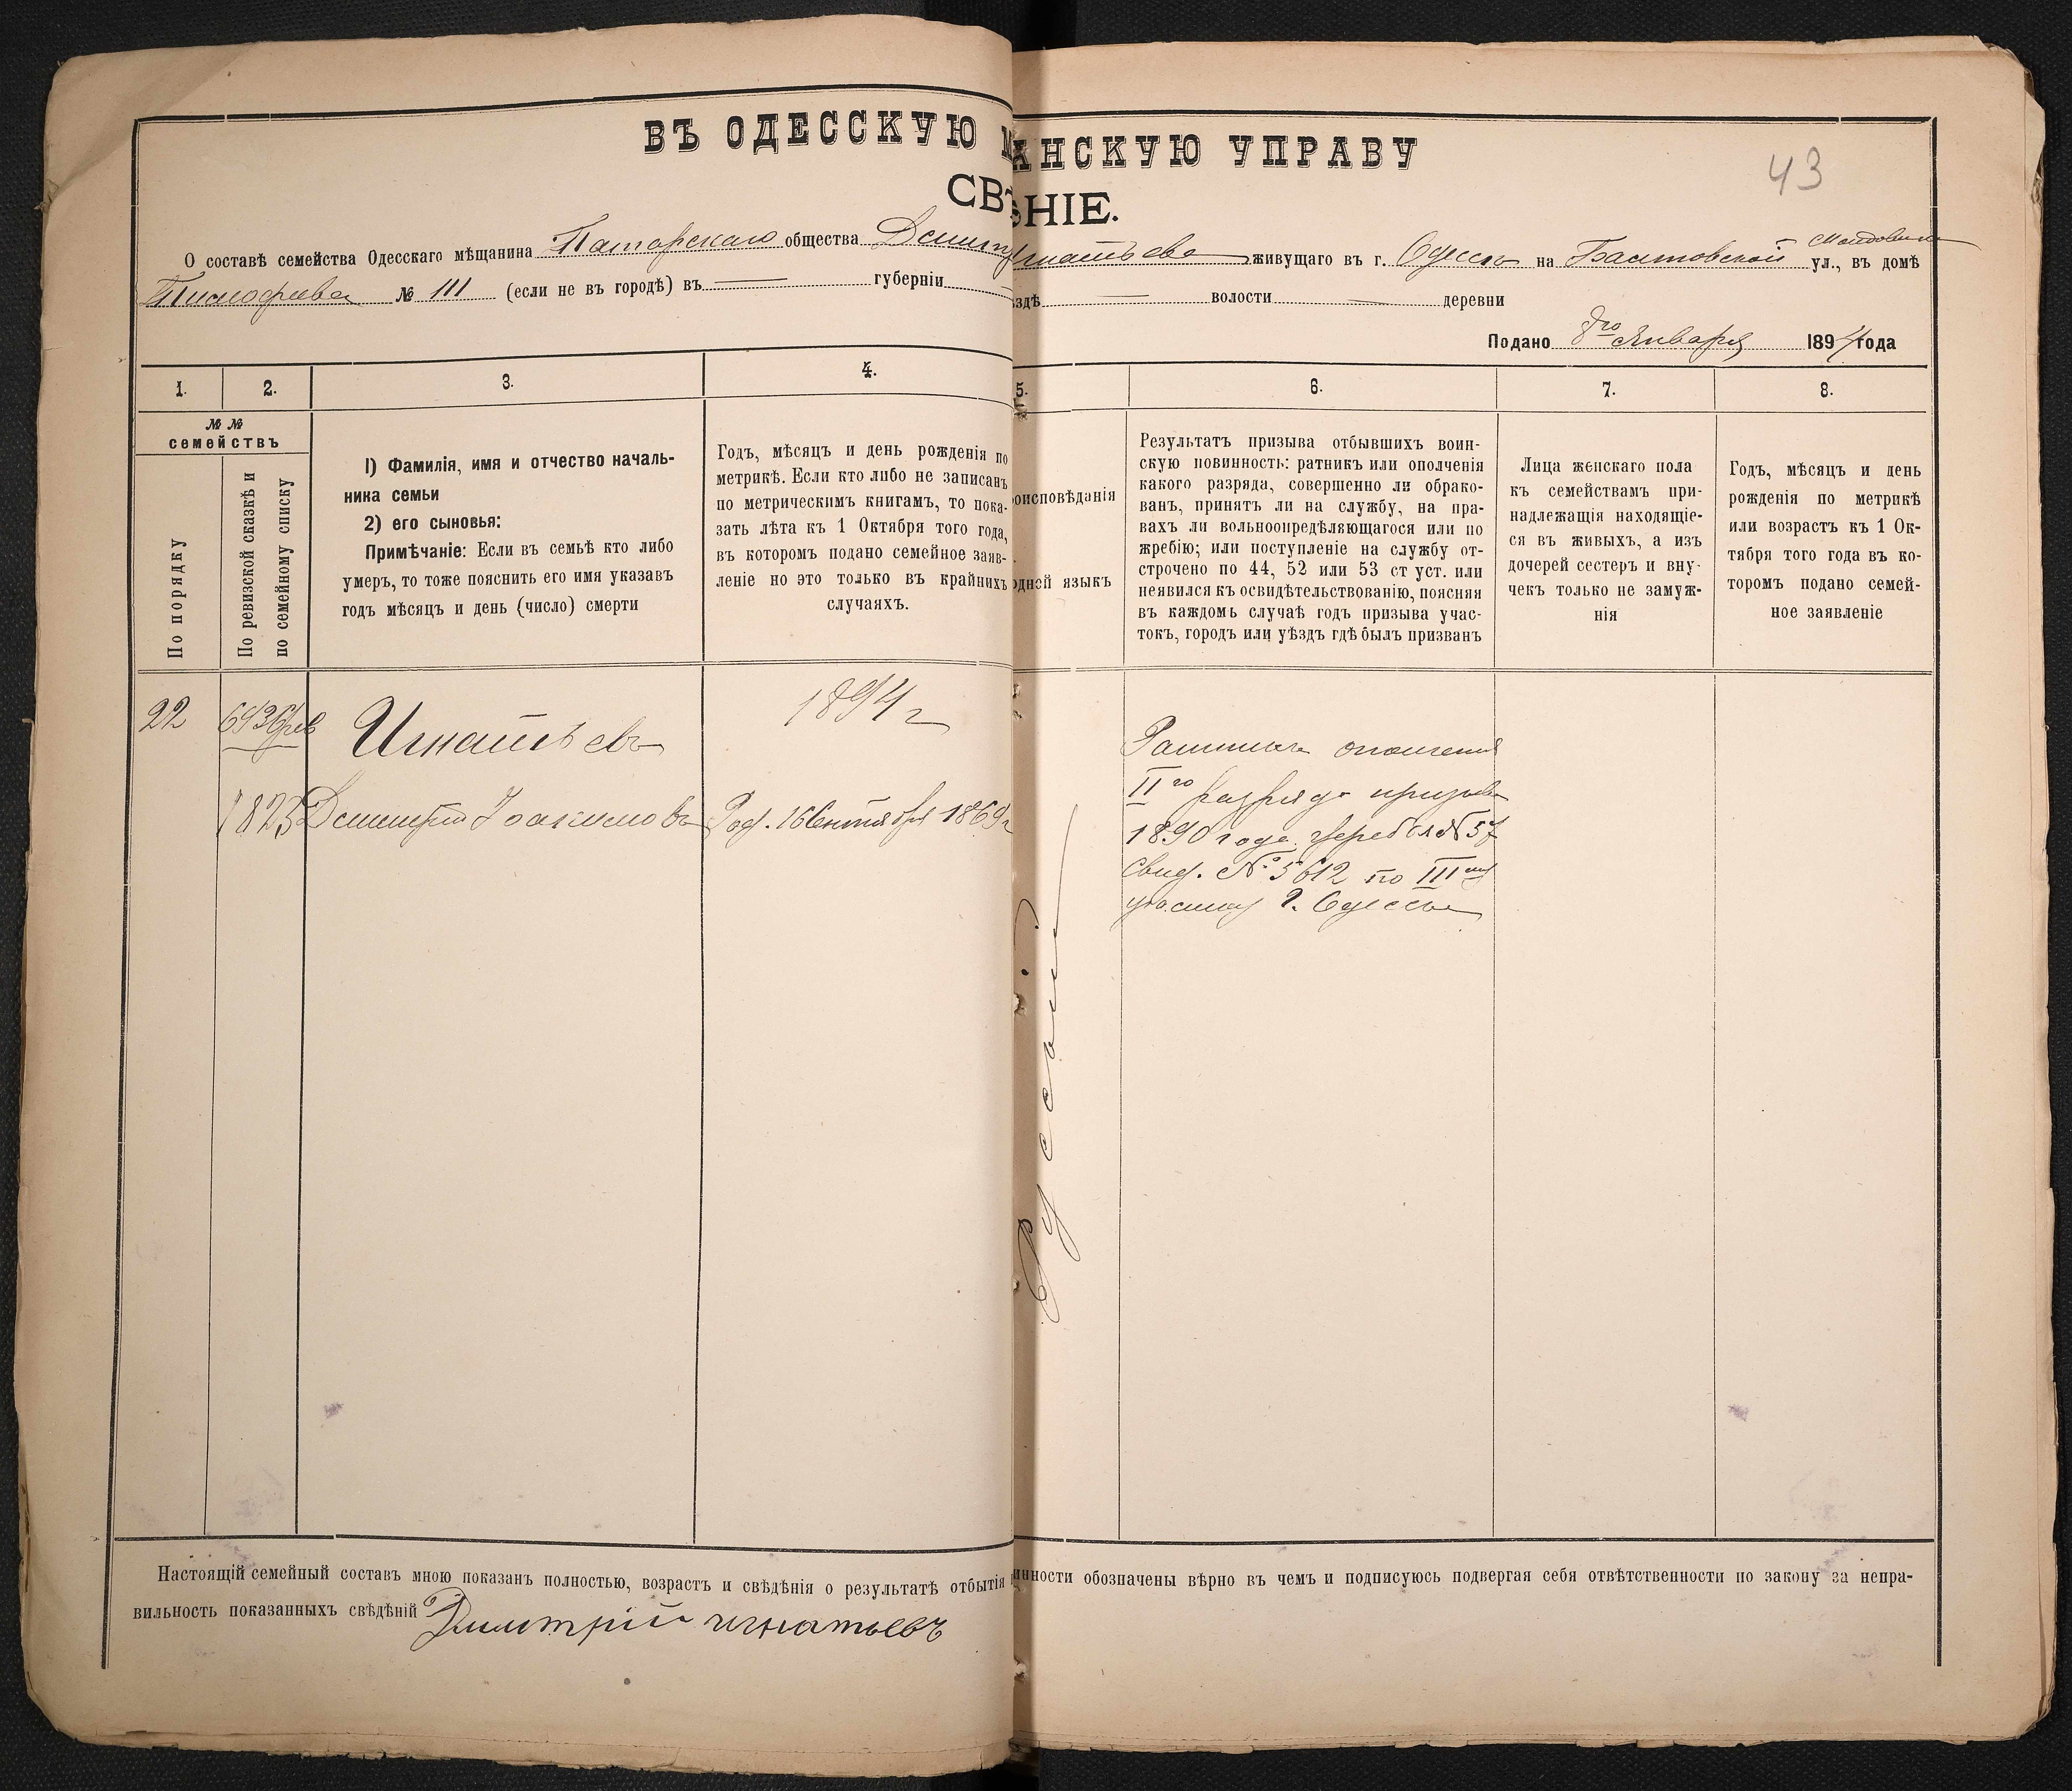 ВЪ ОДЕССКУЮ АНСКУЮ УПРАВУ
43
СВѢНІЕ.
О составѣ семейства Одесскаго мѣщанина Татарскаго общества Дмит Игнатьева живущаго въ г. Одессѣ на Балтовской ул., въ домѣ
Тимофеева № 111 (если не въ городѣ) въ — губерніи здѣ — волости — деревни
Подано 8го Января 1894 года
1. 2. 3. 4. 5. 6. 7. 8.
№ №
семействъ
По порядку
По ревизской сказкѣ и
по семейному списку
1) Фамилія, имя и отчество началь-
ника семьи
2) его сыновья:
Примѣчаніе: Если въ семьѣ кто либо
умеръ, то тоже пояснить его имя указавъ
годъ мѣсяцъ и день (число) смерти
Годъ, мѣсяцъ и день рожденія по
метрикѣ. Если кто либо не записанъ
по метрическимъ книгамъ, то пока-
зать лѣта къ 1 Октября того года,
въ которомъ подано семейное заяв-
леніе но это только въ крайнихъ
случаяхъ.
роисповѣданія
одней языкъ
Результатъ призыва отбывшихъ воин-
скую повинность: ратникъ или ополченія
какого разряда, совершенно ли обрако-
ванъ, принятъ ли на службу, на пра-
вахъ ли вольноопредѣляющагося или по
жребію; или поступленіе на службу от-
строчено по 44, 52 или 53 ст уст. или
неявился къ освидѣтельствованію, поясняя
въ каждомъ случаѣ годъ призыва учас-
токъ, городъ или уѣздъ гдѣ былъ призванъ
Лица женскаго пола
къ семействамъ при-
надлежащія находящіе-
ся въ живыхъ, а изъ
дочерей сестеръ и вну-
чекъ только не замуж-
нія
Годъ, мѣсяцъ и день
рожденія по метрикѣ
или возрастъ къ 1 Ок-
тября того года въ ко-
торомъ подано семей-
ное заявленіе
22
1823
Игнатьевъ
Дмитрій Іоакимовъ
1894 г
Род. 16 Сентября 1869 г
Русскій
Ратникъ ополченія
IIго разряда призыва
1890 года жребій № 57
Свид. № 5612 по IIIму
участку г. Одессы
Настоящій семейный составъ мною показанъ полностью, возрастъ и свѣдѣнія о результатѣ отбытія инности обозначены вѣрно въ чемъ и подписуюсь подвергая себя отвѣтственности по закону за непра-
вильность показанныхъ свѣдѣній Димитрій игнатьевъ